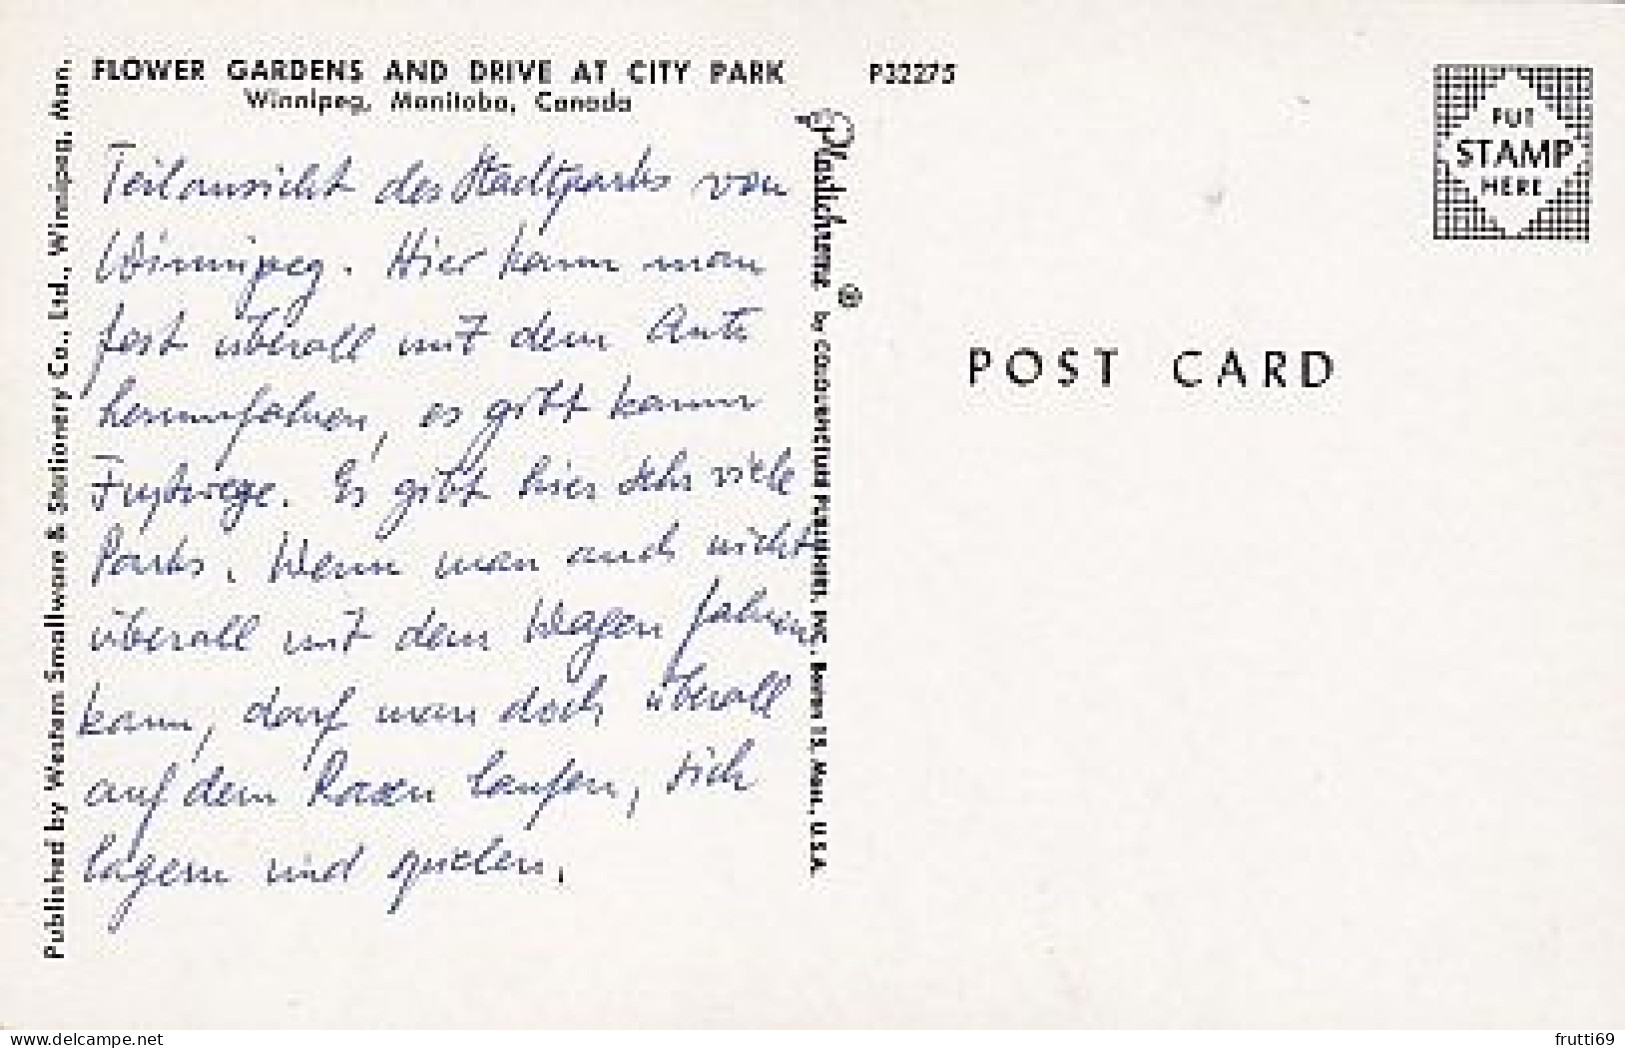 FLOWER GARDENS AND DRIVE AT CITY PARK
Winnipeg, Manitoba, Canada
Teilansicht des Stadtparks von
Winnipeg. Hier kann man
fast überall mit dem Auto
herumfahren, es gibt kaum
Fußwege. Es gibt hier sehr viele
Parks. Wenn man auch nicht
überall mit dem Wagen fahren
kann, darf man doch überall
auf dem Rasen laufen, sich
lagern und spielen.
Published by Western Smallware & Stationery Co., Ltd., Winnipeg, Man.
Plastichrome ® by COLOURPICTURE PUBLISHERS, INC., Boston 15, Mass., U.S.A.
P32275
PUT
STAMP
HERE
POST CARD
delcampe.net
frutti69